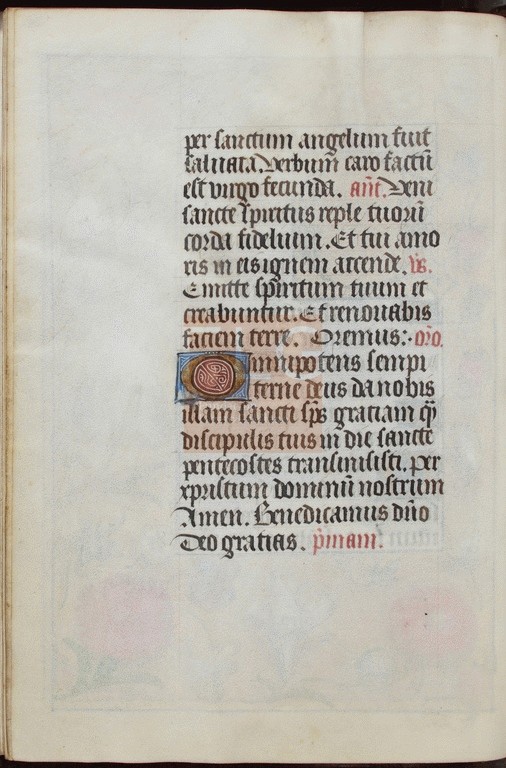 per sanctum angelum fuit
saluata. Verbum caro factū
est virgo fecunda. añt. Veni
sancte spiritus reple tuorū
corda fidelium. Et tui amo
ris in eis ignem accende. vs.
Emitte spiritum tuum et
creabuntur. Et renouabis
faciem terre. Oremus: oro.
Omnipotens sempi
terne deus da nobis
illam sancti sp̄s gratiam q̄
discipulis tuis in die sancte
pentecostes transmisisti. per
xpristum dominū nostrum
Amen. Benedicamus dño
Deo gratias.